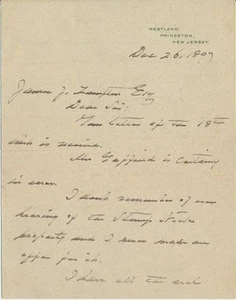 WESTLAND,
PRINCETON,
NEW JERSEY.
Dec 26. 1897
James J. Esq
Dear Sir:
Your letter of the 18th
is received.
Mr is certainly
in error.
I don't remember of ever
hearing of the
property and I never made an
offer for it.
I have all the